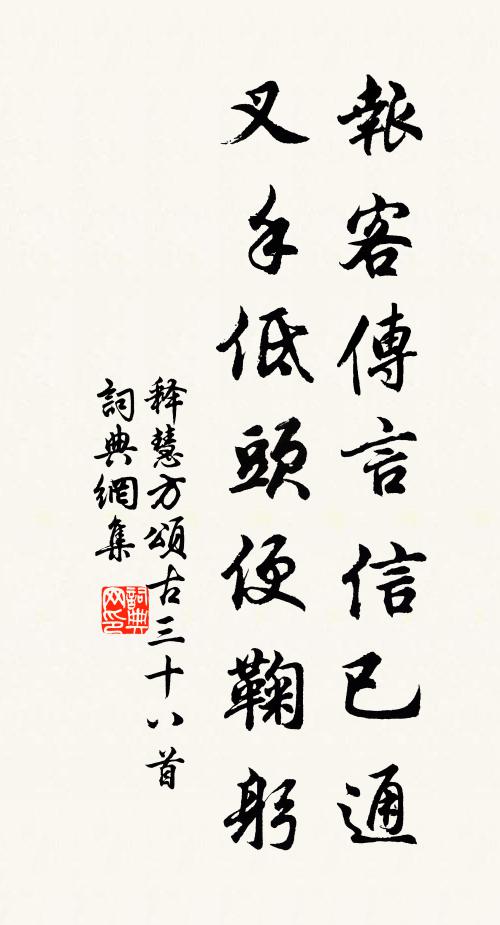 報客傳言信已通
叉手低頭便鞠躬
释慧方頌古三十八首
詞典網集
詞典网印